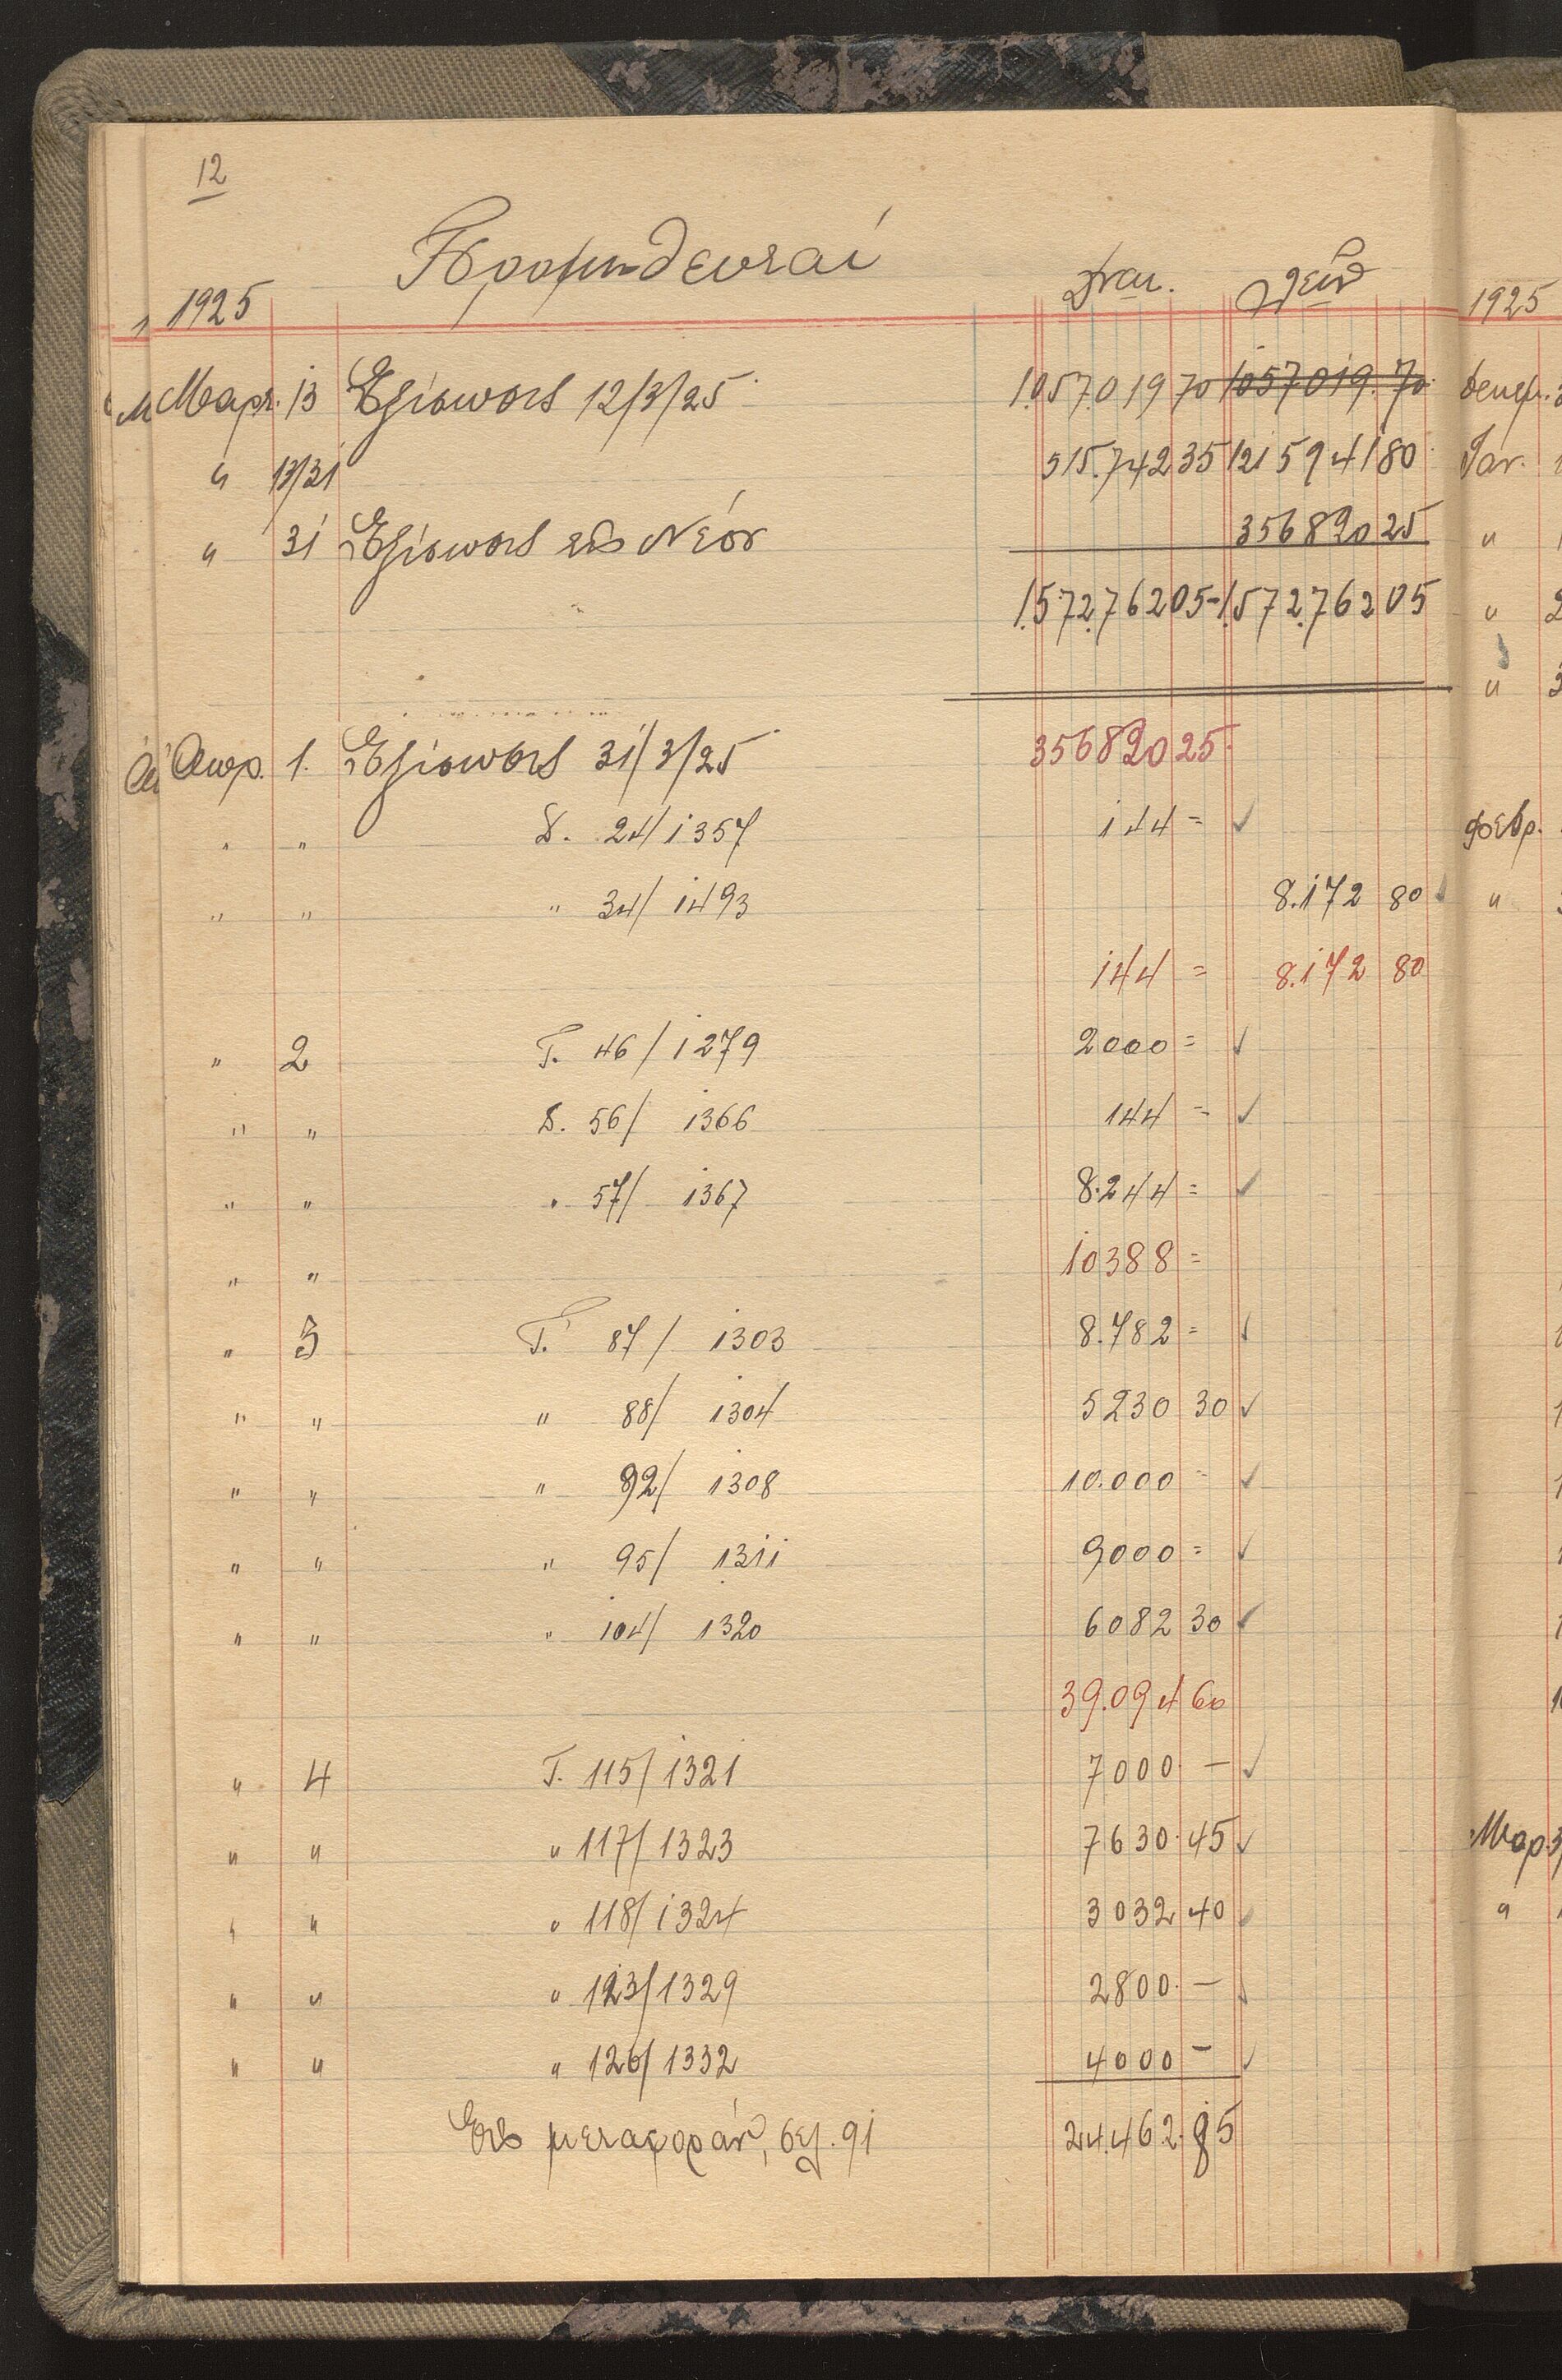 12
Προμηθευταί
1925 Δναι. Λεῖν
Μαρτ. 13 Ἐξίσωσις 12/3/25 1.057.019 70 1057019.70
" 13/31 515.742 35 1215941 80
" 31 Ἐξίσωσις εἰς Νέον 356820 25
1.572.762 05 - 1.572.762 05
Απρ. 1. Ἐξίσωσις 31/3/25 356820 25
" " Σ. 24/1357 144 = ✓
" " " 34/1493 8.172 80 ✓
144 = 8.172 80
" 2 Τ. 46/1279 2000 = ✓
" " Σ. 56/1366 144 = ✓
" " " 57/1367 8.244 = ✓
" " 10388 =
" 3 Τ. 87/1303 8.782 = ✓
" " " 88/1304 5230 30 ✓
" " " 92/1308 10.000 = ✓
" " " 95/1311 9000 = ✓
" " " 104/1320 6082 30 ✓
39.094 60
" 4 Τ. 115/1321 7000 - ✓
" " " 117/1323 7630 45 ✓
" " " 118/1324 3032 40 ✓
" " " 123/1329 2800 - ✓
" " " 126/1332 4000 - ✓
Εἰς μεταφοράν, σελ. 91 24.462.85
1925
Δεκεμ.
Ιαν.
"
"
"
Φεβρ.
"
Μαρ.
"